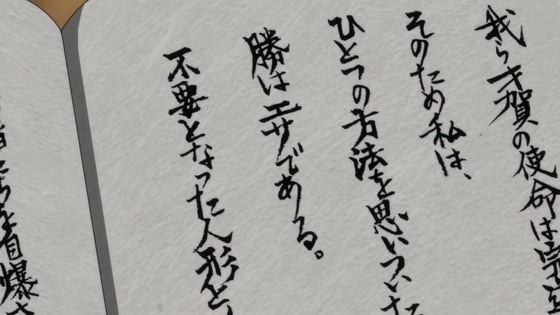 我ら才賀の使命は完
そのため私は、
ひとつの方法を思いついた
勝はエサである。
不要となった人形と
自爆さ